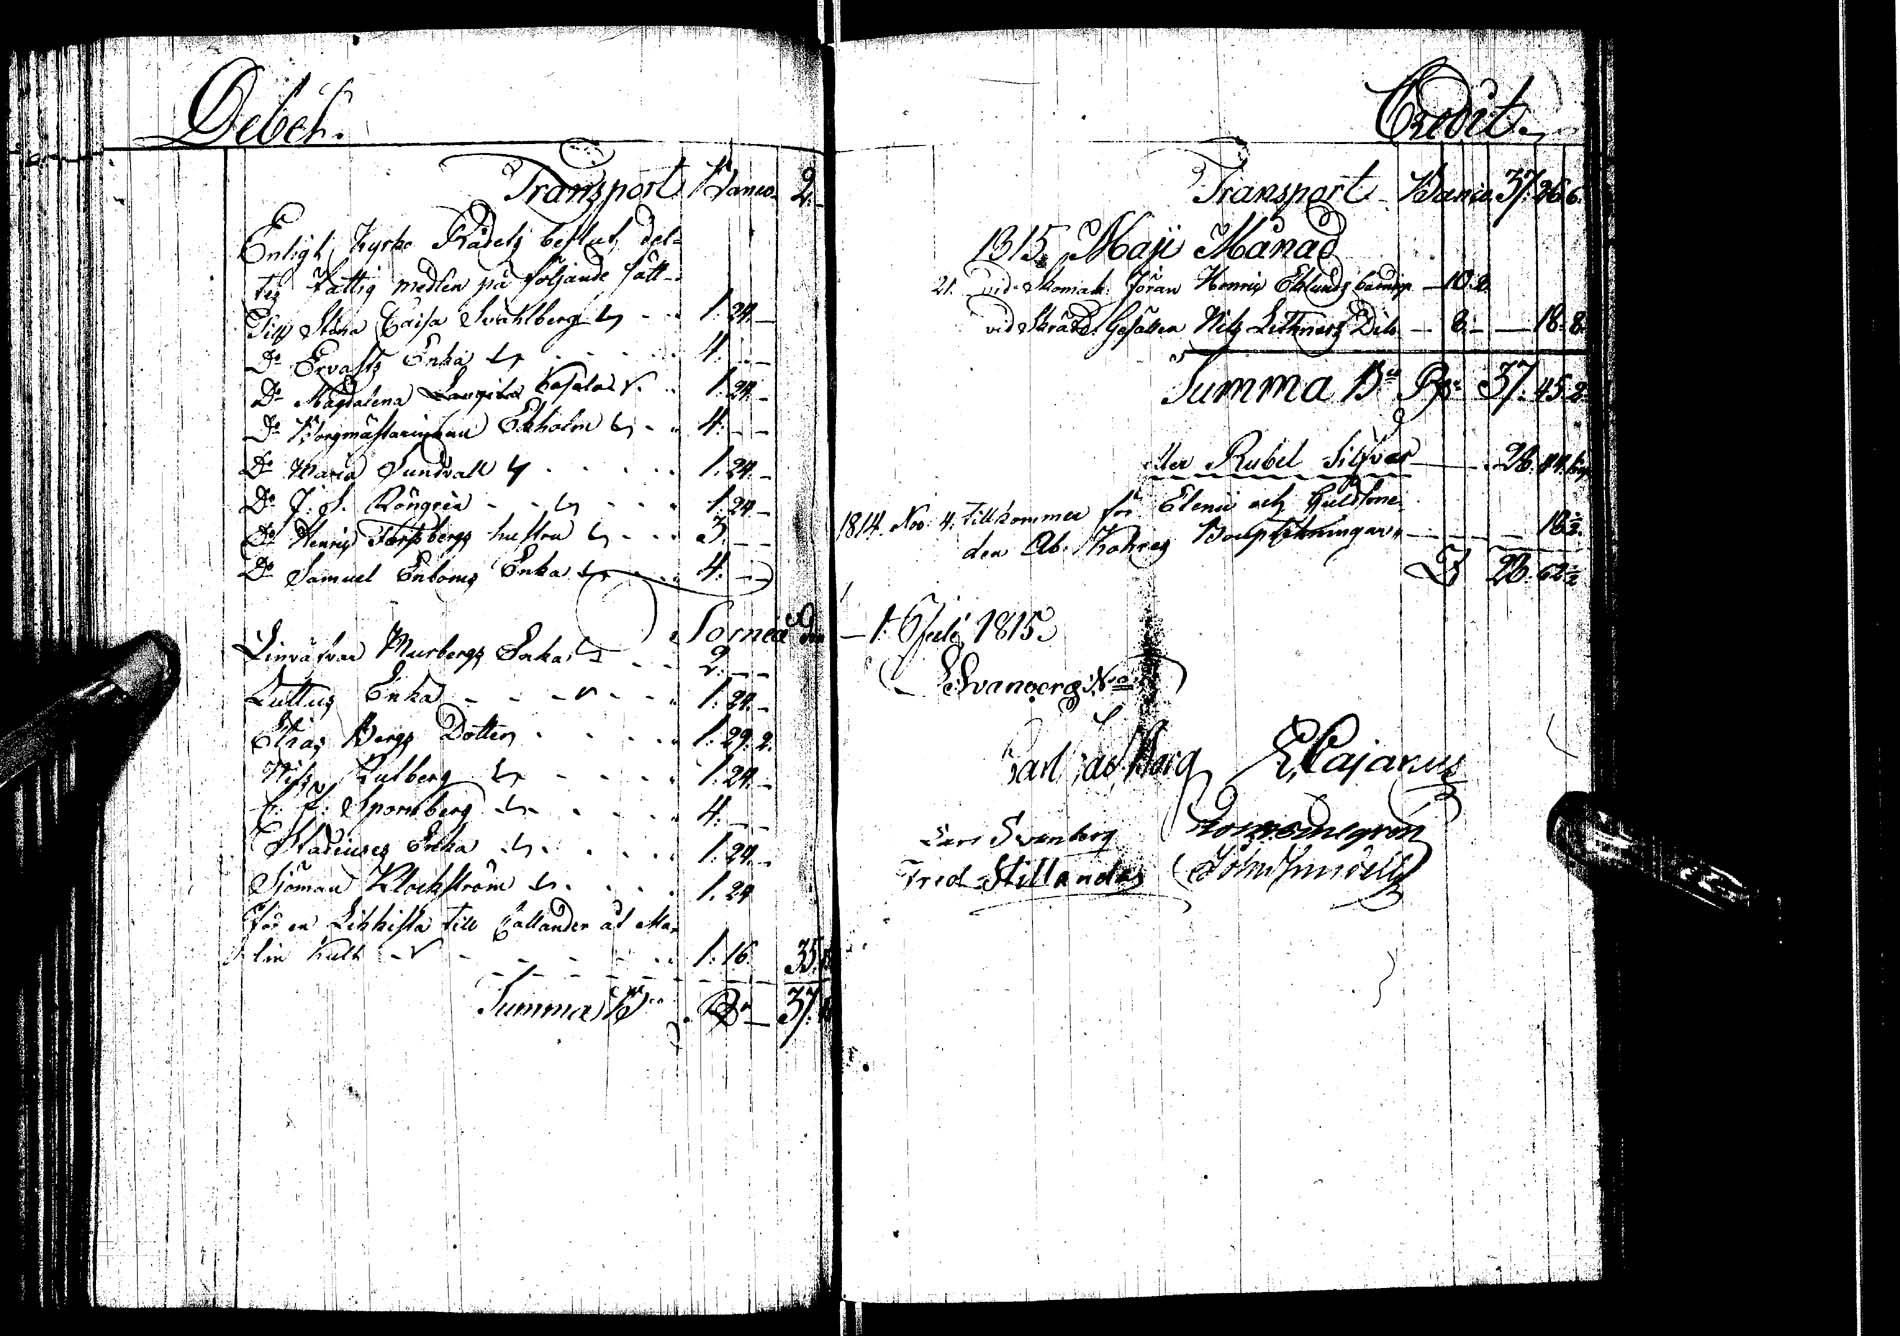 Debet.
Transport Banco 2.
Enligt Kyrko Rådets beslut del-
tes Fattig medlen på följande sätt
Till Stina Caisa Svahlberg 1. 24. –
Do Ervasts Enka 4. – –
Do Magdalena 1. 24. –
Do Borgmästarinnan Ekholm 4. – –
Do Maria Sundvall 1. 24. –
Do J. S. Röngrén 1. 24. –
Do Henric Forssbergs hustru 3. – –
Do Samuel Enboms Enka 4. – –
Linväfvar Murbergs Enka 2. – –
Luttus Enka 1. 24. –
Elias Bergs Dotter 1. 29. 2.
Nils Kulberg 1. 24. –
Spornberg 4. – –
Stadiuses Enka 1. 24. –
Sjöman Klockström 1. 24
För en Likkista till Callander at Mar-
tin 1. 16. 35.
Summa Bco Rd 37.
Credit.
Transport Banco 37. 26. 6.
1815. Maji Månad
21. vid Skomak. Jöran Henric Eklunds barndop – 10. 2.
vid Skrädd. Gesällen Nils Lithners Dito – 8. – – 18. 8.
Summa Bco Rd 37. 45. 2.
eller Rubel Silfver 28. 44. kop
1814. Nov. 4. tillkommer för Elenii och Guldstone
den Ab. Kohres Bouptekningar 18½.
28. 62½
Torneå den 1. Julii 1815.
E Svanberg
Carl Jac Borg E. Cajanus
Lars Svenberg
Fred. Stillander John Sundell